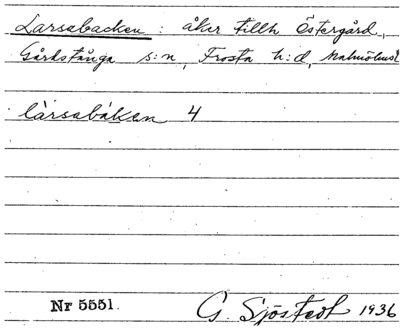 Larsabacken : åker tillh Östergård,
Gårdstånga s:n, Frosta h:d, Malmöhusl
làrsabáken 4
Nr 5551. G. Sjöstedt 1936